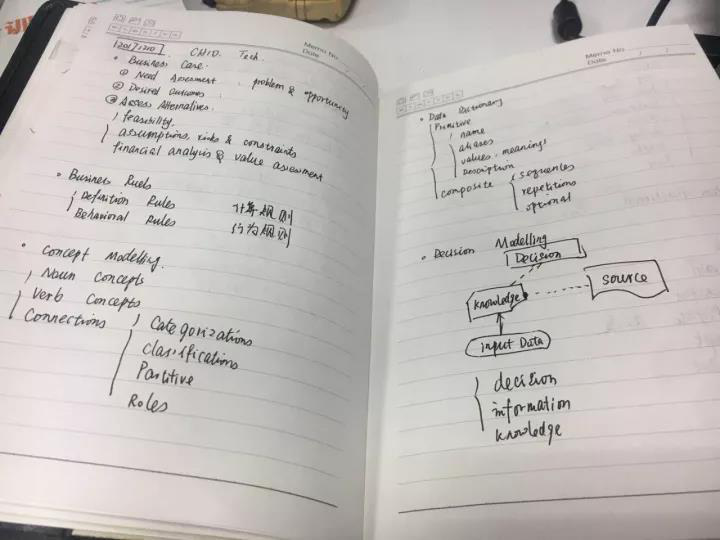 Memo No.
Date / /
2017/12/10 CH10. Tech.
• Business Case.
① Need Assessment. problem & opportunity
② Desired Outcomes.
③ Assess Alternatives.
feasibility.
assumptions, risks & constraints
financial analysis & value assessment
• Business Ruels
Definition Rules 计算规则
Behavioral Rules 行为规则
• Concept Modelling.
Noun Concepts
Verb Concepts
Connections
Categorizations
Classifications
Partitive
Roles
Memo No.
Date / /
• Data Dictionary
Primitive
name
aliases
values, meanings
Description
composite
sequences
repetitions
optional
• Decision Modelling
Decision
Knowledge
source
input Data
decision
information
knowledge